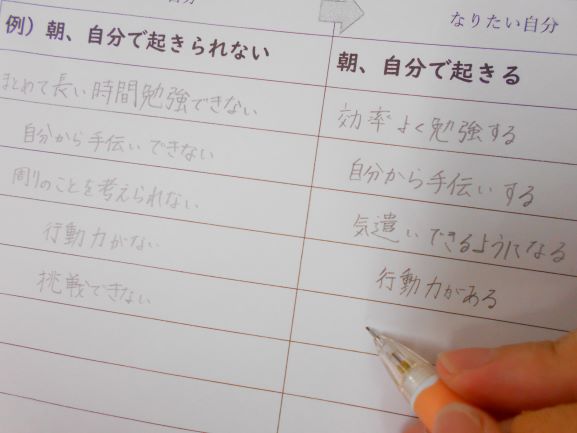 自分
なりたい自分
例）朝、自分で起きられない
朝、自分で起きる
まとめて長い時間勉強できない
効率よく勉強する
自分から手伝いできない
自分から手伝いする
周りのことを考えられない
気遣いできるようになる
行動力がない
行動力がある
挑戦できない